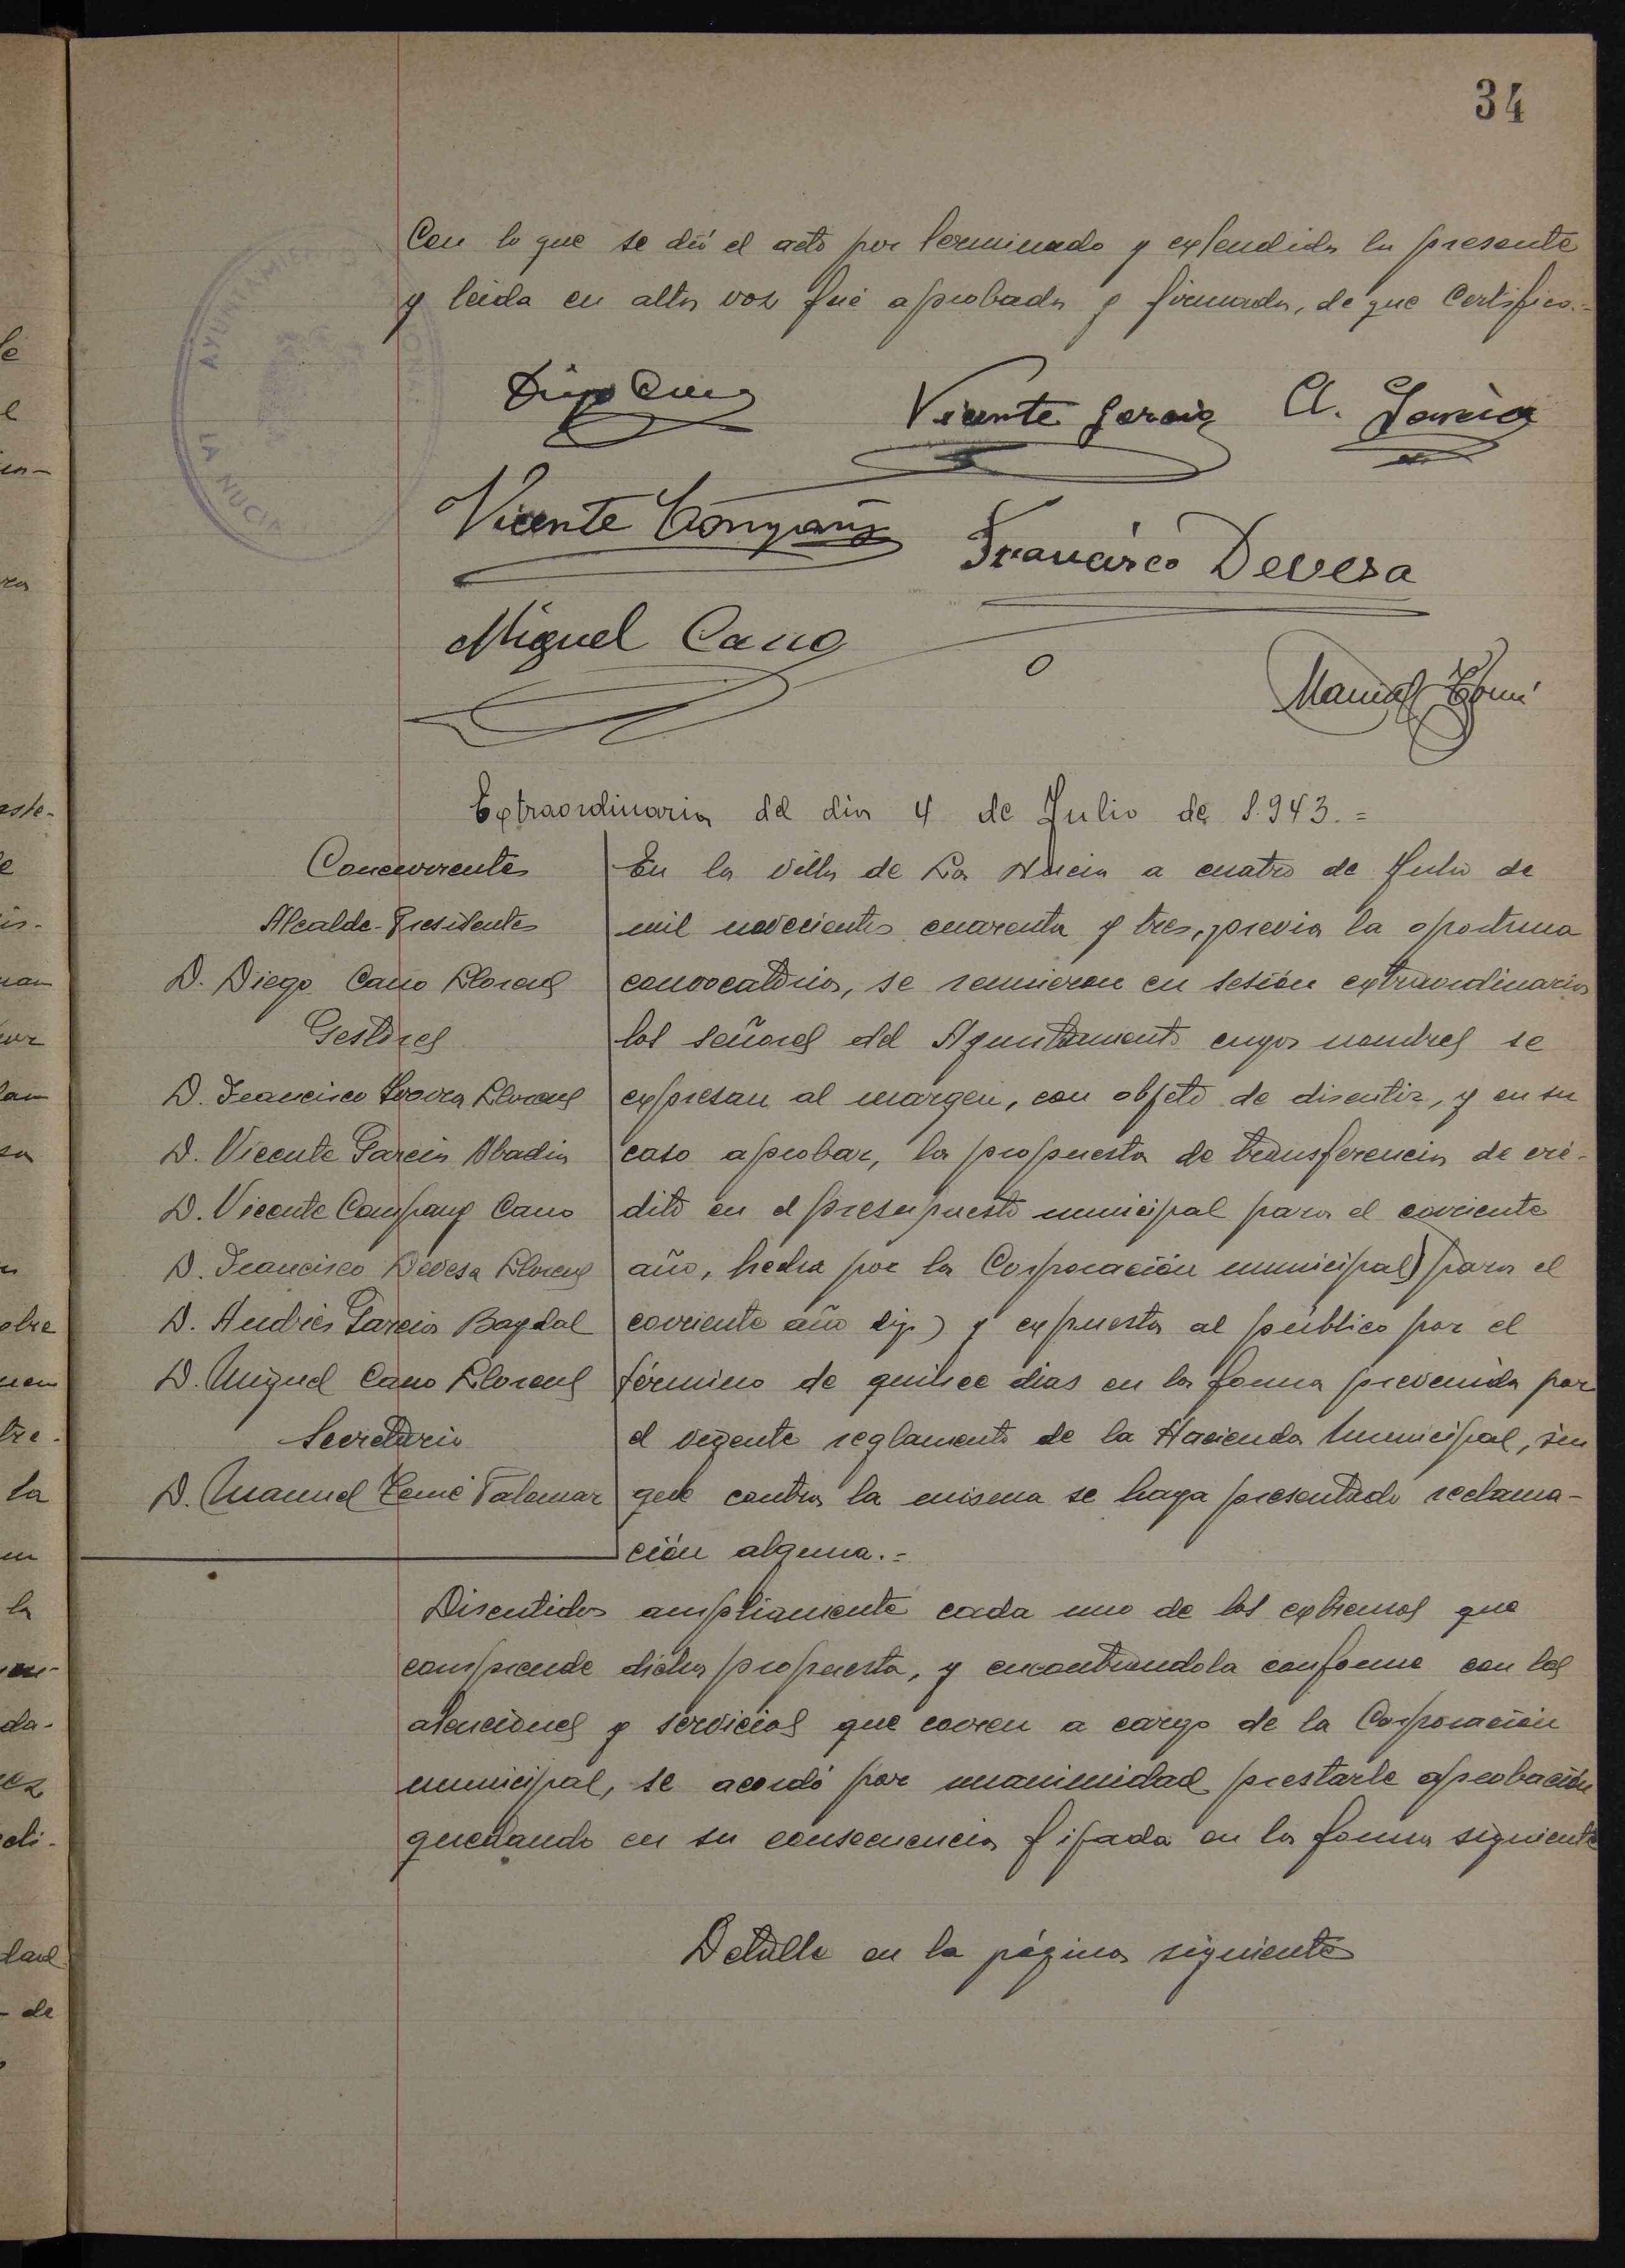 34
Con lo que se dió el acto por terminado y extendida la presente
y leida en alta voz fué aprobada y firmada, de que Certifico.=
AYUNTAMIENTO
LA NUCIA
Diego Cano
Vicente Garcia A. Garcia
Vicente Compañ
Francisco Devesa
Miguel Cano
Manuel
Extraordinaria del dia 4 de Julio de 1.943.=
Concurrentes
Alcalde-Presidente
D. Diego Cano Llorens
Gestores
D. Francisco Llorens
D. Vicente Garcia Abadia
D. Vicente Compañ Cano
D. Francisco Devesa Llorens
D. Andrés Garcia
D. Miguel Cano Llorens
Secretario
D. Manuel Talamar
En la villa de La Nucia a cuatro de Julio de
mil novecientos cuarenta y tres, previa la oportuna
convocatoria, se reunieron en sesión extraordinaria
los señores del Ayuntamiento cuyos nombres se
expresan al margen, con objeto de discutir, y en su
caso aprobar, la propuesta de transferencia de cré-
dito en el presupuesto municipal para el corriente
año, hecha por la Corporación municipal) para el
corriente año dijo) y expuesta al público por el
término de quince dias en la forma prevenida por
el vigente reglamento de la Hacienda Municipal, sin
que contra la misma se haya presentado reclama-
ción alguna.=
Discutidos ampliamente cada uno de los extremos que
comprende dicha propuesta, y encontrandola conforme con las
atenciones y servicios que corren a cargo de la Corporación
municipal, se acordó por unanimidad prestarle aprobación
quedando en su consecuencia fijada en la forma siguiente
Detalle en la página siguiente